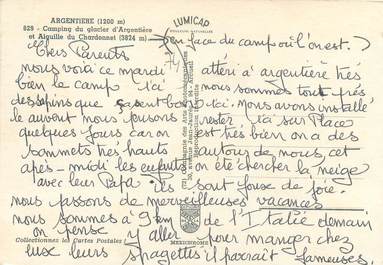 ARGENTIERE (1200 m)
829 - Camping du glacier d'Argentière
et Aiguille du Chardonnet (3824 m)
LUMICAP
COULEUR NATURELLE
en face du camp où l'on est.
Chers Parents
nous voici ce mardi atteri a argentière très
bien le camp ici nous sommes tout près
des sapins que ça sent bon ici. Nous avons installé
le auvent nous pensons rester ici sur Place
quelques jours car on est très bien on a des
sommets très hauts autour de nous cet
après-midi les enfants on été chercher la neige
avec leur Papa ils sont fous de joie.
nous passons de merveilleuses vacances
nous sommes à 9 km de l'Italie demain
on pense y aller pour manger chez
eux leurs spagettis il parait fameuses,
Collectionnez les Cartes Postales
MEXICHROME